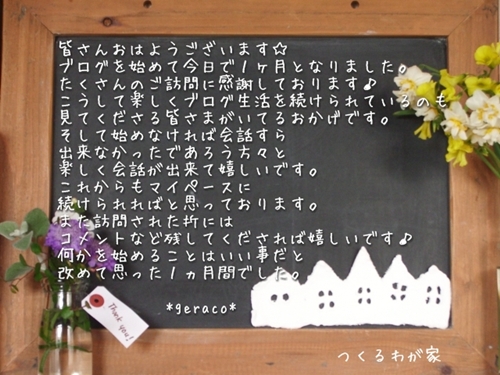 皆さんおはようございます☆
ブログを始めて今日で1ヶ月となりました。
たくさんのご訪問に感謝しております♪
こうして楽しくブログ生活を続けられているのも
見てくださる皆さまがいてるおかげです。
そして始めなければ会話すら
出来なかったであろう方々と
楽しく会話が出来て嬉しいです。
これからもマイペースに
続けられればと思っております。
また訪問された折には
コメントなど残してくだされば嬉しいです♪
何かを始めることはいい事だと
改めて思った1ヵ月間でした。
*geraco*
Thank you!
つくるわが家